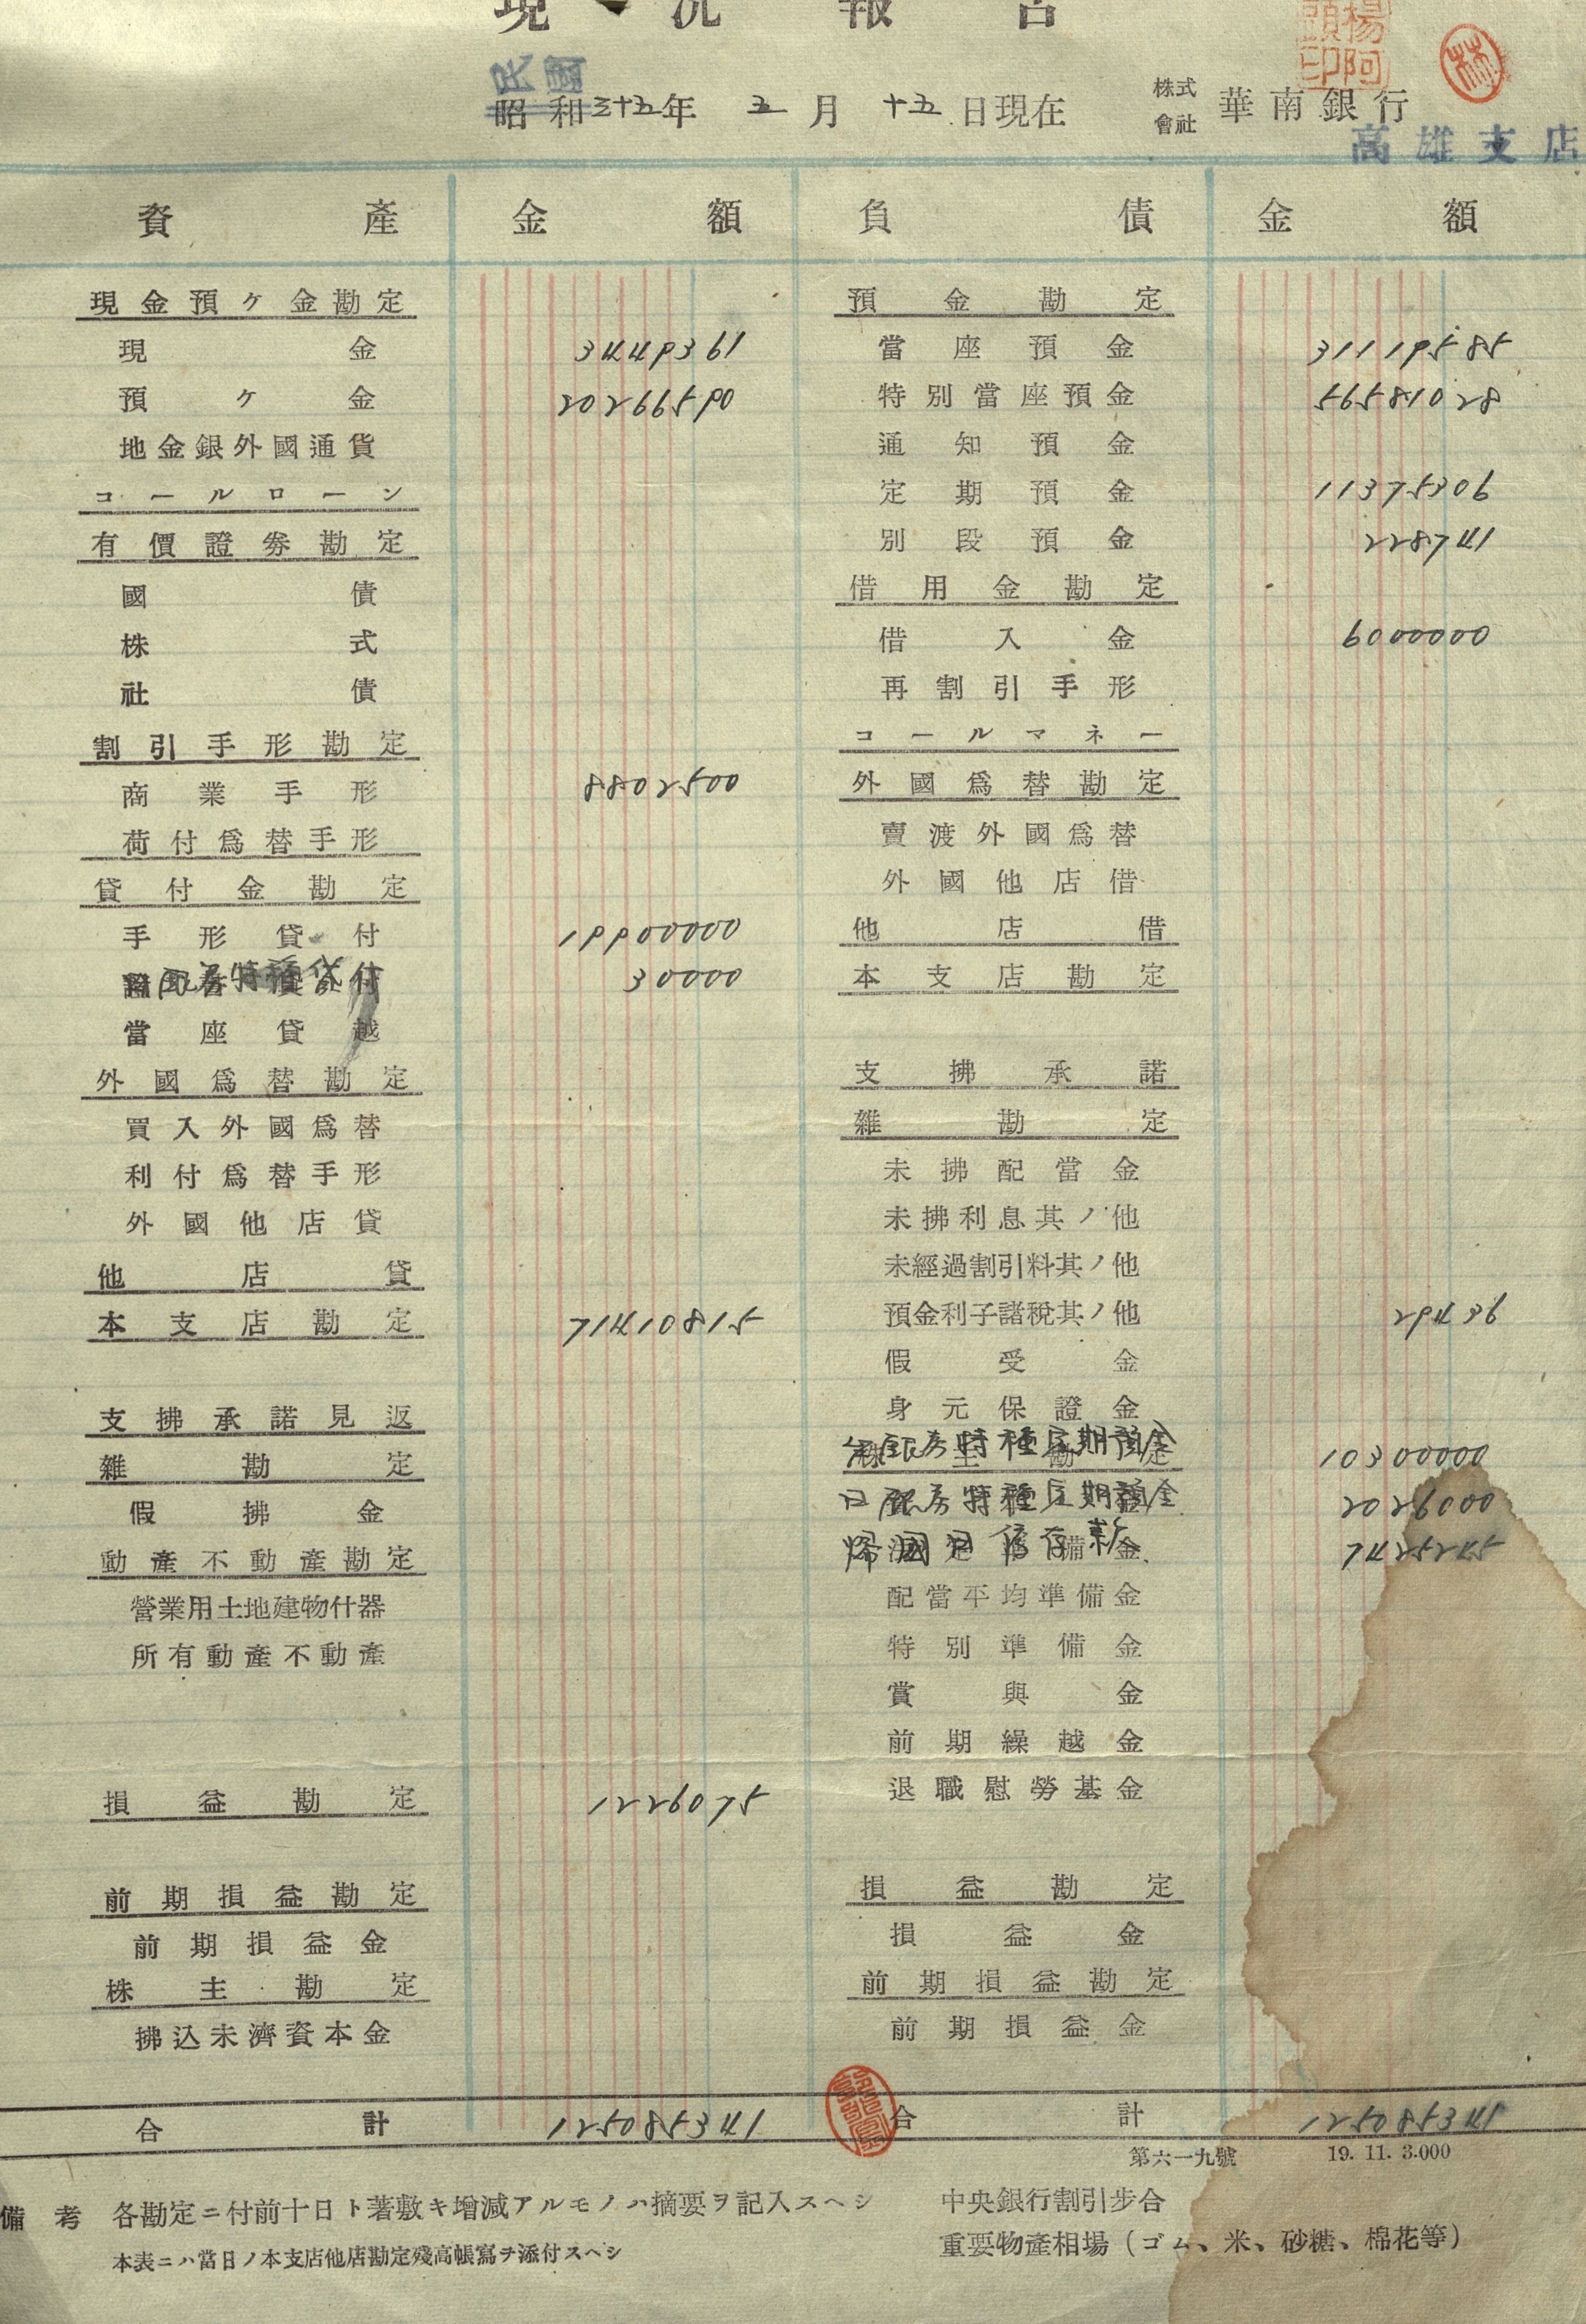 現況報告
民國
昭和三十五年 五月 十五日現在
株式會社 華南銀行
高雄支店
楊阿頭印
林
資產 金額 負債 金額
現金預ケ金勘定
現金 3449361
預ケ金 20266590
地金銀外國通貨
コールローン
有價證劵勘定
國債
株式
社債
割引手形勘定
商業手形 8802500
荷付爲替手形
貸付金勘定
手形貸付 19900000
30000
當座貸越
外國爲替勘定
買入外國爲替
利付爲替手形
外國他店貸
他店貸
本支店勘定 71410815
支拂承諾見返
雜勘定
假拂金
動產不動產勘定
營業用土地建物什器
所有動產不動產
損益勘定 1226075
前期損益勘定
前期損益金
株主勘定
拂込未濟資本金
合計 125085341
預金勘定
當座預金 31119585
特別當座預金 56581028
通知預金
定期預金 11375306
別段預金 228741
借用金勘定
借入金 6000000
再割引手形
コールマネー
外國爲替勘定
賣渡外國爲替
外國他店借
他店借
本支店勘定
支拂承諾
雜勘定
未拂配當金
未拂利息其ノ他
未經過割引料其ノ他
預金利子諸稅其ノ他 29436
假受金
身元保證金
台銀券特種定期預金 10300000
日銀券特種定期預金 2026000
7425245
配當平均準備金
特別準備金
賞與金
前期繰越金
退職慰勞基金
損益勘定
損益金
前期損益勘定
前期損益金
合計 125085341
第六一九號 19. 11. 3.000
備考 各勘定ニ付前十日ト著敷キ增減アルモノハ摘要ヲ記入スヘシ
本表ニハ當日ノ本支店他店勘定殘高帳寫ヲ添付スヘシ
中央銀行割引步合
重要物產相場(ゴム、米、砂糖、棉花等)